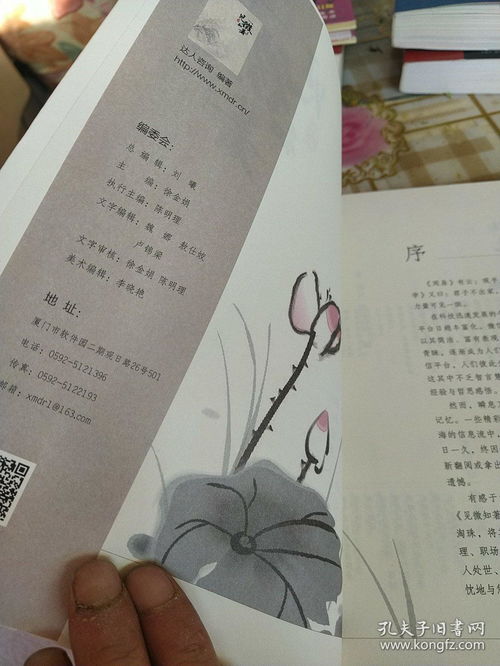 达人咨询 编著
http://www.xmdr.cn/
编委会：
总编辑：刘 曦
主 编：徐金娟
执行主编：陈明理
文字编辑：魏 嫕 敖仕姣
卢锦梁
文字审核：徐金娟 陈明理
美术编辑：李晓艳
地 址：
厦门市软件园二期观日路26号501
电话：0592-5121396
传真：0592-5122193
邮箱：xmdr1@163.com
序
《周易》有云：观乎
李》又曰：君子不出家，
力量可见一斑。
在科技迅速发展的今
平台日趋丰富化、微
以其简洁、富有表现
青睐，逐渐成为人们
信平台，人们彼此分
这其中不乏智言慧
经验与哲思感悟。
然而，瞬息
记忆。一些精彩
海的信息流中，
日一久，终因
新翻阅或拿出
遗憾。
有感于
《见微知著
淘珠，将
理、职场
人处世、
忧地与
孔夫子旧书网
www.kongfz.com